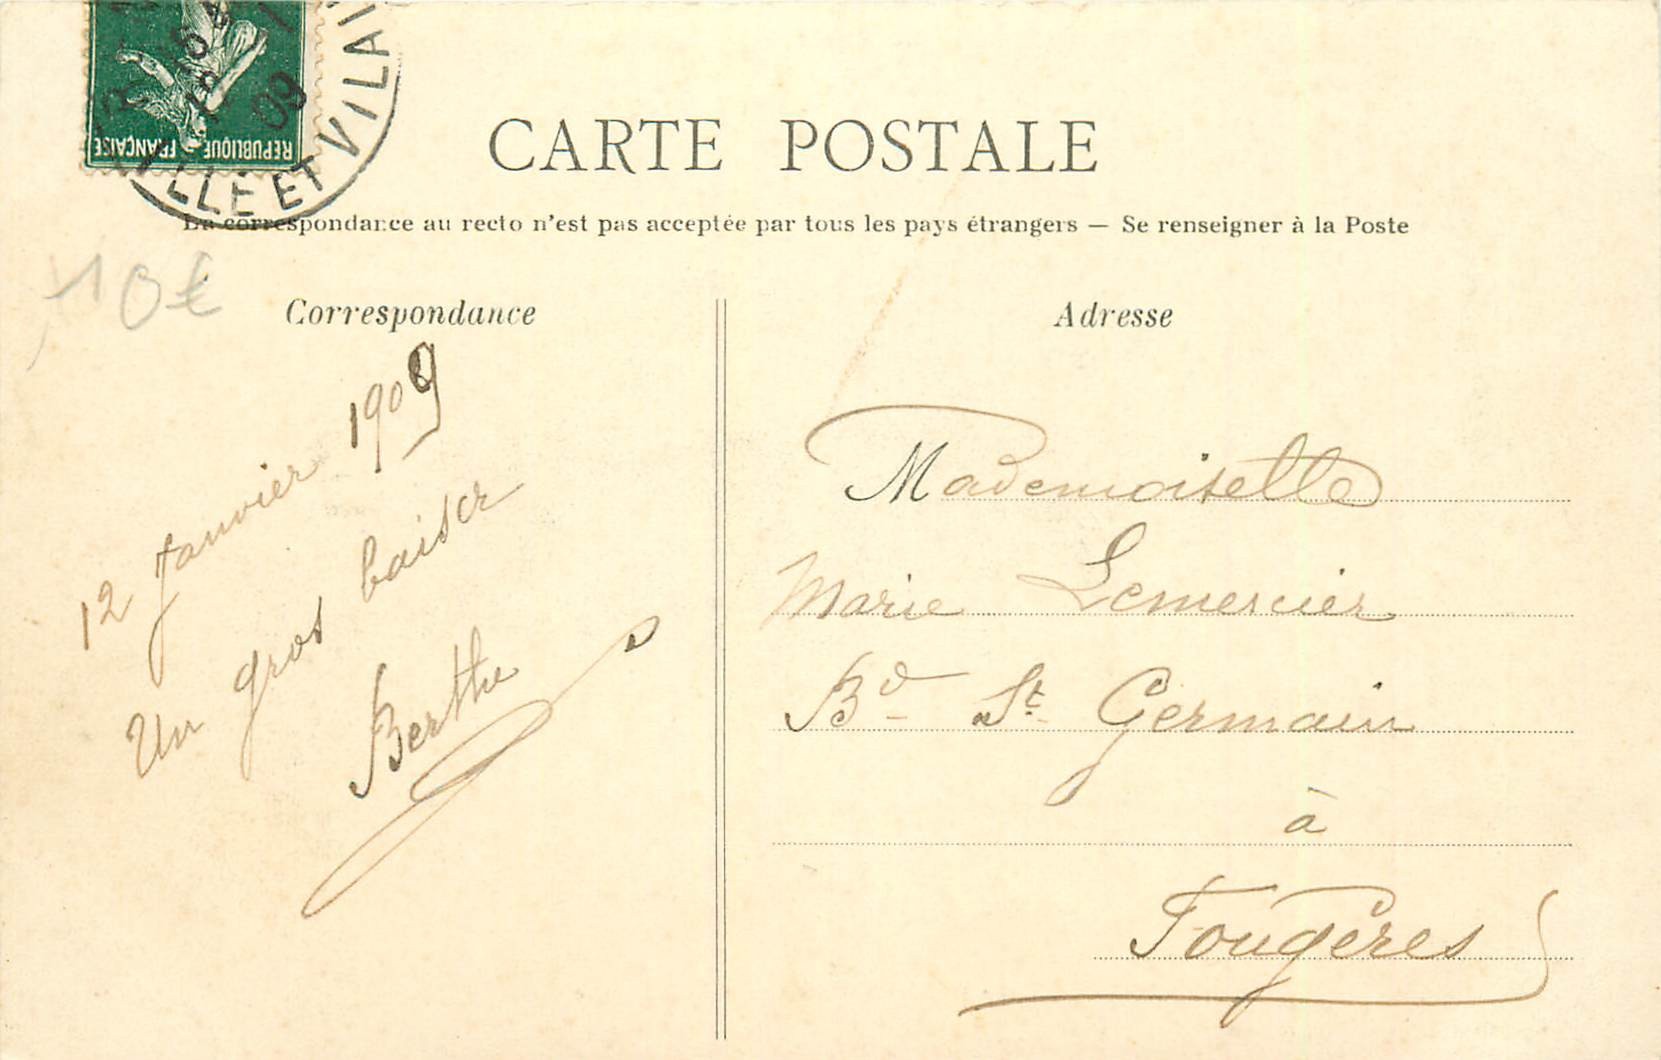 REPUBLIQUE FRANÇAISE
ILLE ET VILAI
09
CARTE POSTALE
La correspondance au recto n'est pas acceptée par tous les pays étrangers — Se renseigner à la Poste
10€
Correspondance
12 Janvier 1909
Un gros baiser
Berthe
Adresse
Mademoiselle
Marie Lemercier
Bd St Germain
à
Fougères